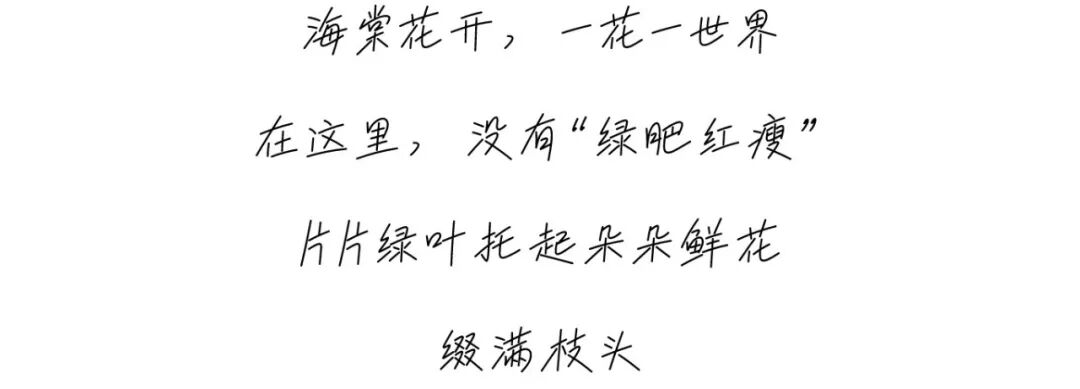 海棠花开，一花一世界
在这里，没有“绿肥红瘦”
片片绿叶托起朵朵鲜花
缀满枝头